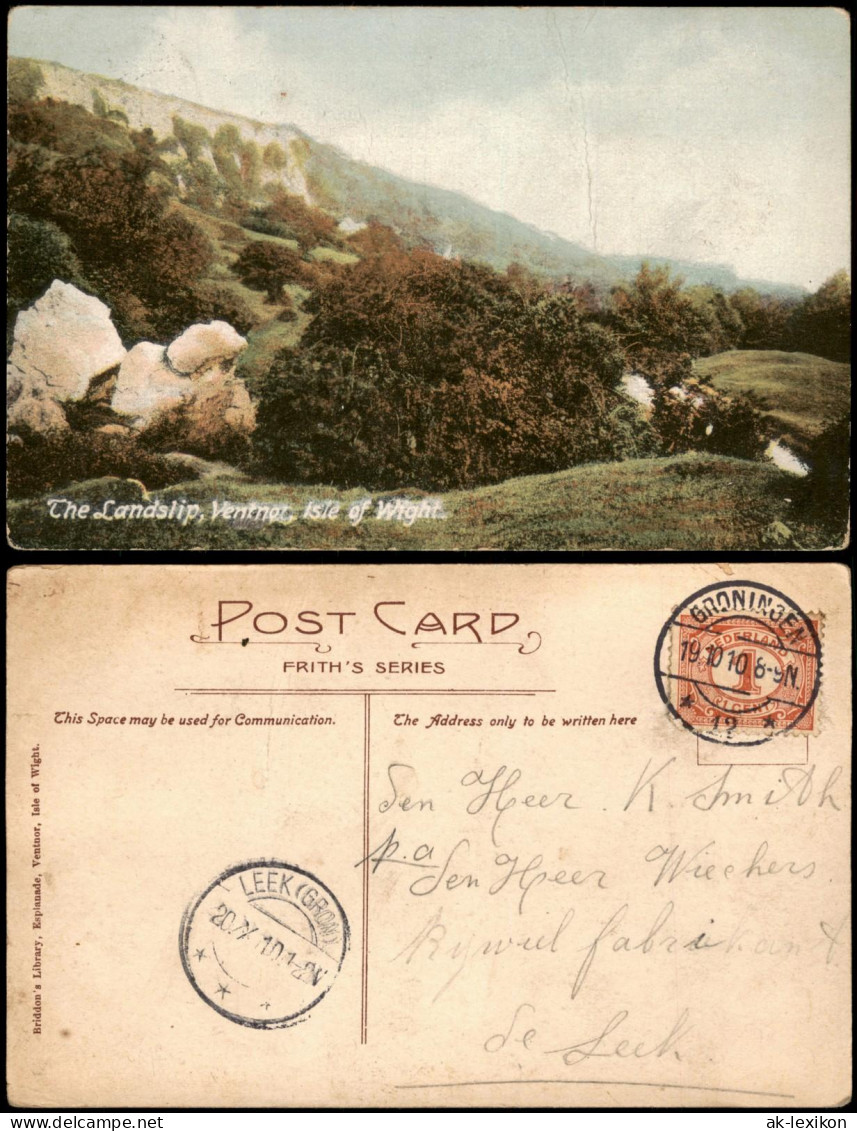 The Landslip, Ventnor, Isle of Wight.
POST CARD
FRITH'S SERIES
This Space may be used for Communication.
The Address only to be written here
GRONINGEN
19.10.10 8-9N
* 12 *
NEDERLAND
1
CENT
Briddon's Library, Esplanade, Ventnor, Isle of Wight.
LEEK (GRON)
20.X.10.1-2N
den Heer K Smith
p.a
den Heer Wiechers
Rywiel fabrikant
de Leek
ak-lexikon